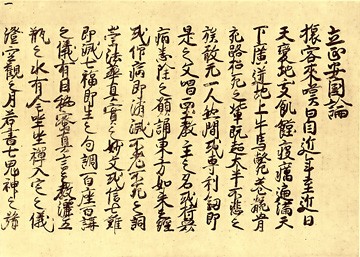 立正安国論
旅客来嘆曰自近年至近日
天変地夭飢饉疫癘遍満天
下広迸地上牛馬斃巷骸骨
充路招死之輩既超大半不悲之
族敢無一人然間或専利剣即
是之文唱西土教主之名或恃衆
病悉除之願誦東方如来之経
或仰病即消滅不老不死之詞
崇法華真実之妙文或信七難
即滅七福即生之句調百座百講
之儀有因秘密真言之教灑五
瓶之水有全坐禅入定之儀
澄空観之月若書七鬼神之号